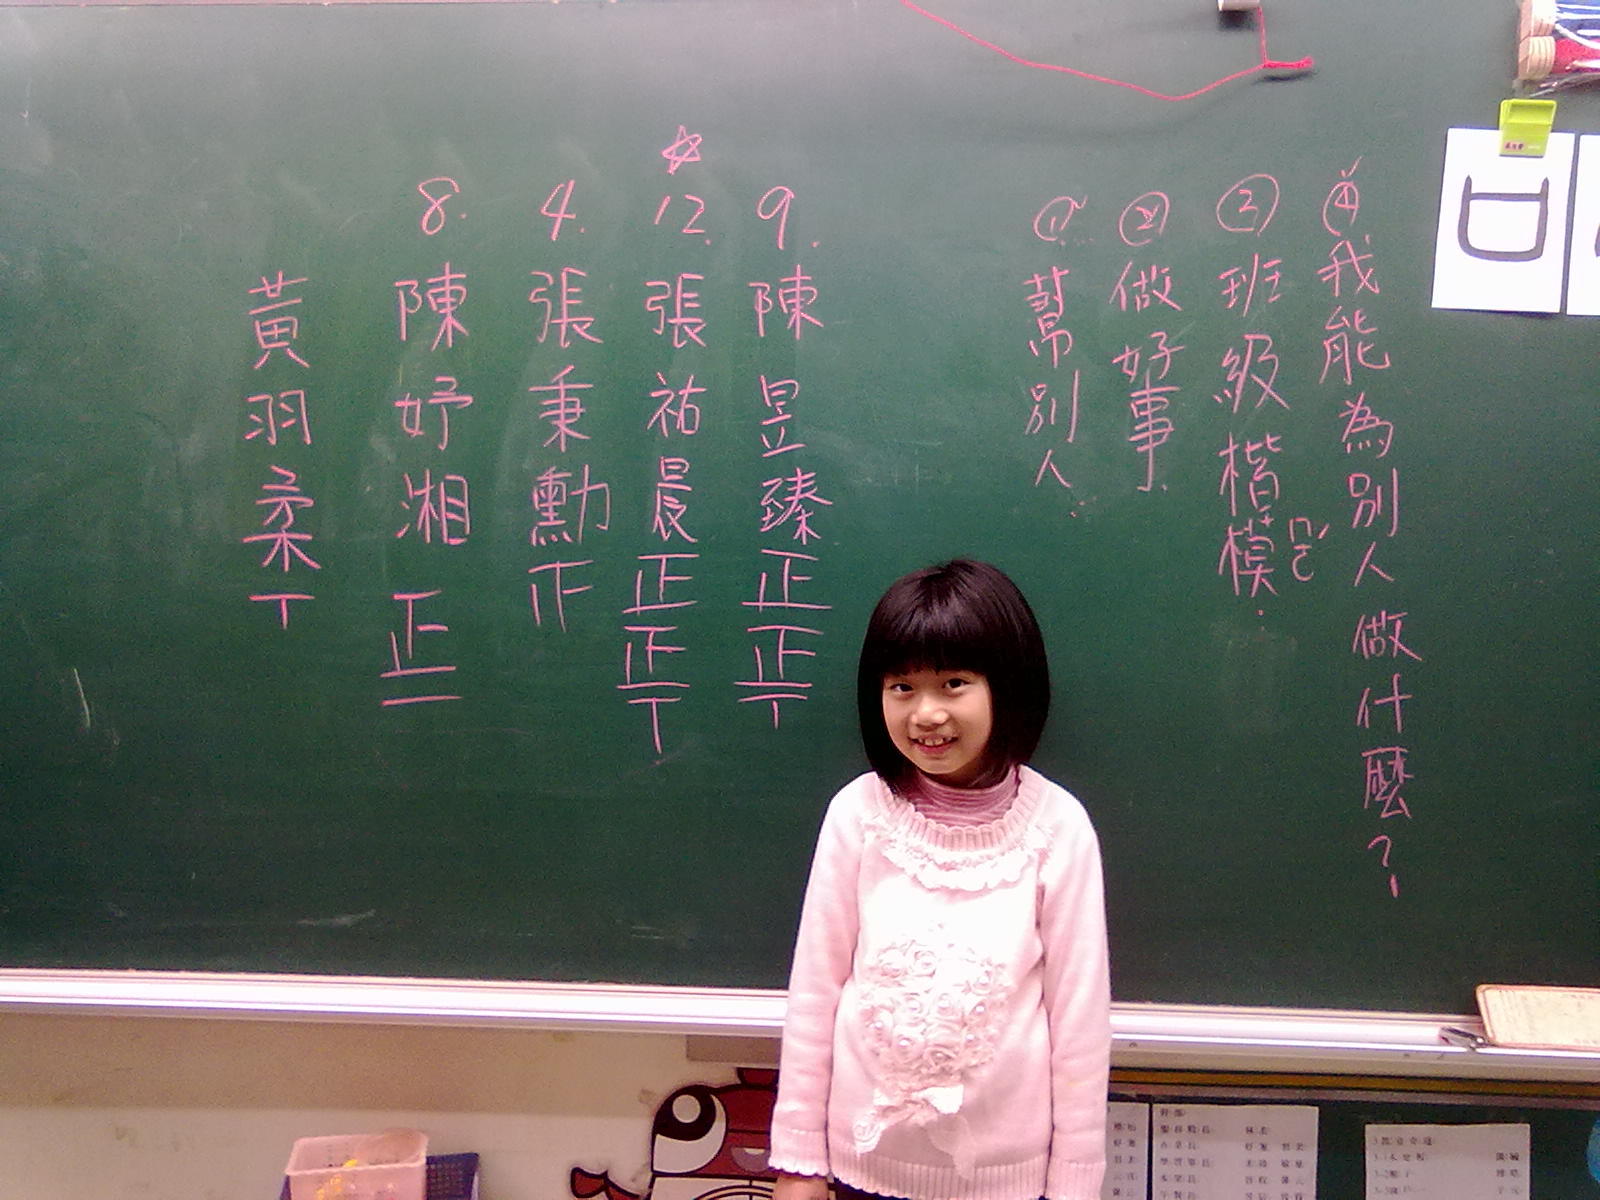 ①幫別人
②做好事
③班級楷模 ㄇㄛˊ
④我能為別人做什麼?
9. 陳昱臻 正正丅
12. 張祐晨 正正丅
4. 張秉勳 正
8. 陳妤湘 正一
黃羽柔 丅